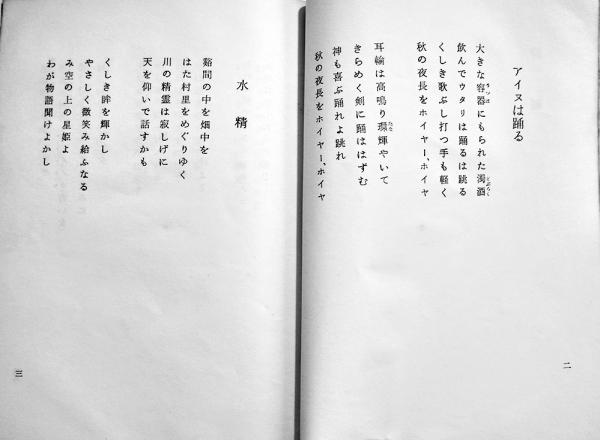 アイヌは踊る
大きな容器にもられた濁酒
飲んでウタリは踊るは跳る
くしき歌ぶし打つ手も軽く
秋の夜長をホイヤー、ホイヤ
耳輪は高鳴り環輝やいて
きらめく剣に踊はほずむ
神も喜ぶ踊れよ跳れ
秋の夜長をホイヤー、ホイヤ
二
水精
谿間の中を畑中を
はた村里をめぐりゆく
川の精霊は寂しげに
天を仰いで話すかも
くしき眸を輝かし
やさしく微笑み給ふなる
み空の上の星姫よ
わが物語聞けよかし
三